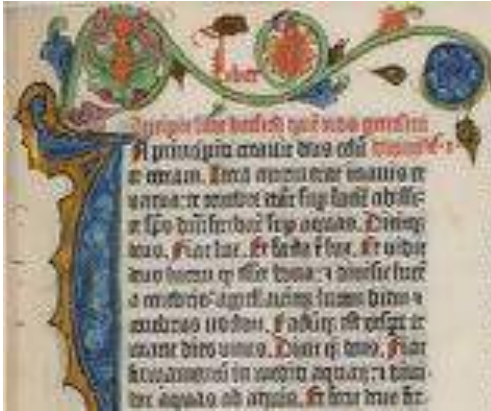 liber
Incipit liber bresith quē nos genesim
A principio creavit deus celū dicimus
et terram. Terra autem erat inanis et
vacua: et tenebre erāt sup faciē abissi:
et spūs dñi ferebat sup aquas. Dixitq;
deus. Fiat lux. Et facta ē lux. Et vidit
deus lucem q esset bona: ⁊ divisit lucē
a tenebris· appellavitq; lucem diem ⁊
tenebras noctem. Factūq; est vespe et
mane dies unus. Dixit q; deus. Fiat
firmamentū in medio aquarū: ⁊ divi-
dat aquas ab aquis. Et fecit deus fir-